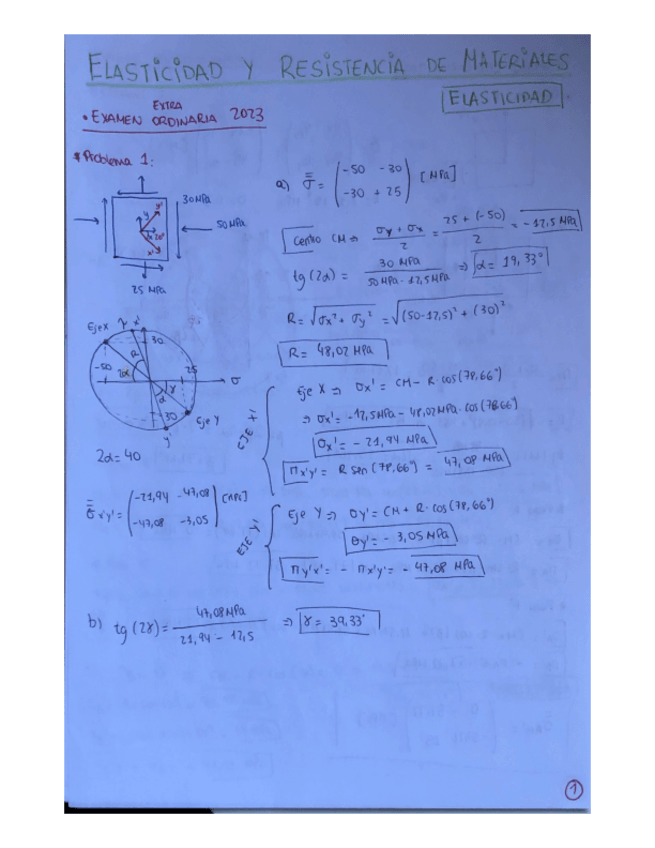 ELASTICIDAD Y RESISTENCIA DE MATERIALES
ELASTICIDAD
EXTRA
• EXAMEN ORDINARIA 2023
* Problema 1:
30 MPa
50 MPa
25 MPa
y
y'
x'
20°
a) σ = (-50 -30
-30 +25) [MPa]
Centro CM ⇒ σy + σx / 2 = 25 + (-50) / 2 = -12,5 MPa
tg (2α) = 30 MPa / 50 MPa - 12,5 MPa ⇒ α = 19,33°
R = √σx² + σy² = √(50-12,5)² + (30)²
R = 48,02 MPa
Eje X
x'
30
-50
25
R
2α
α
γ
σ
30
Eje Y
y'
2α = 40
EJE X'
Eje X ⇒ σx' = CM - R · cos (78,66°)
⇒ σx' = -12,5 MPa - 48,02 MPa · cos (78,66°)
σx' = -21,94 MPa
Πx'y' = R sen (78,66°) = 47,08 MPa
σx'y' = (-21,94 -47,08
-47,08 -3,05) [MPa]
EJE Y'
Eje Y ⇒ σy' = CM + R · cos (78,66°)
σy' = -3,05 MPa
Πy'x' = - Πx'y' = - 47,08 MPa
b) tg (2γ) = 47,08 MPa / 21,94 - 12,5 ⇒ γ = 39,33°
1